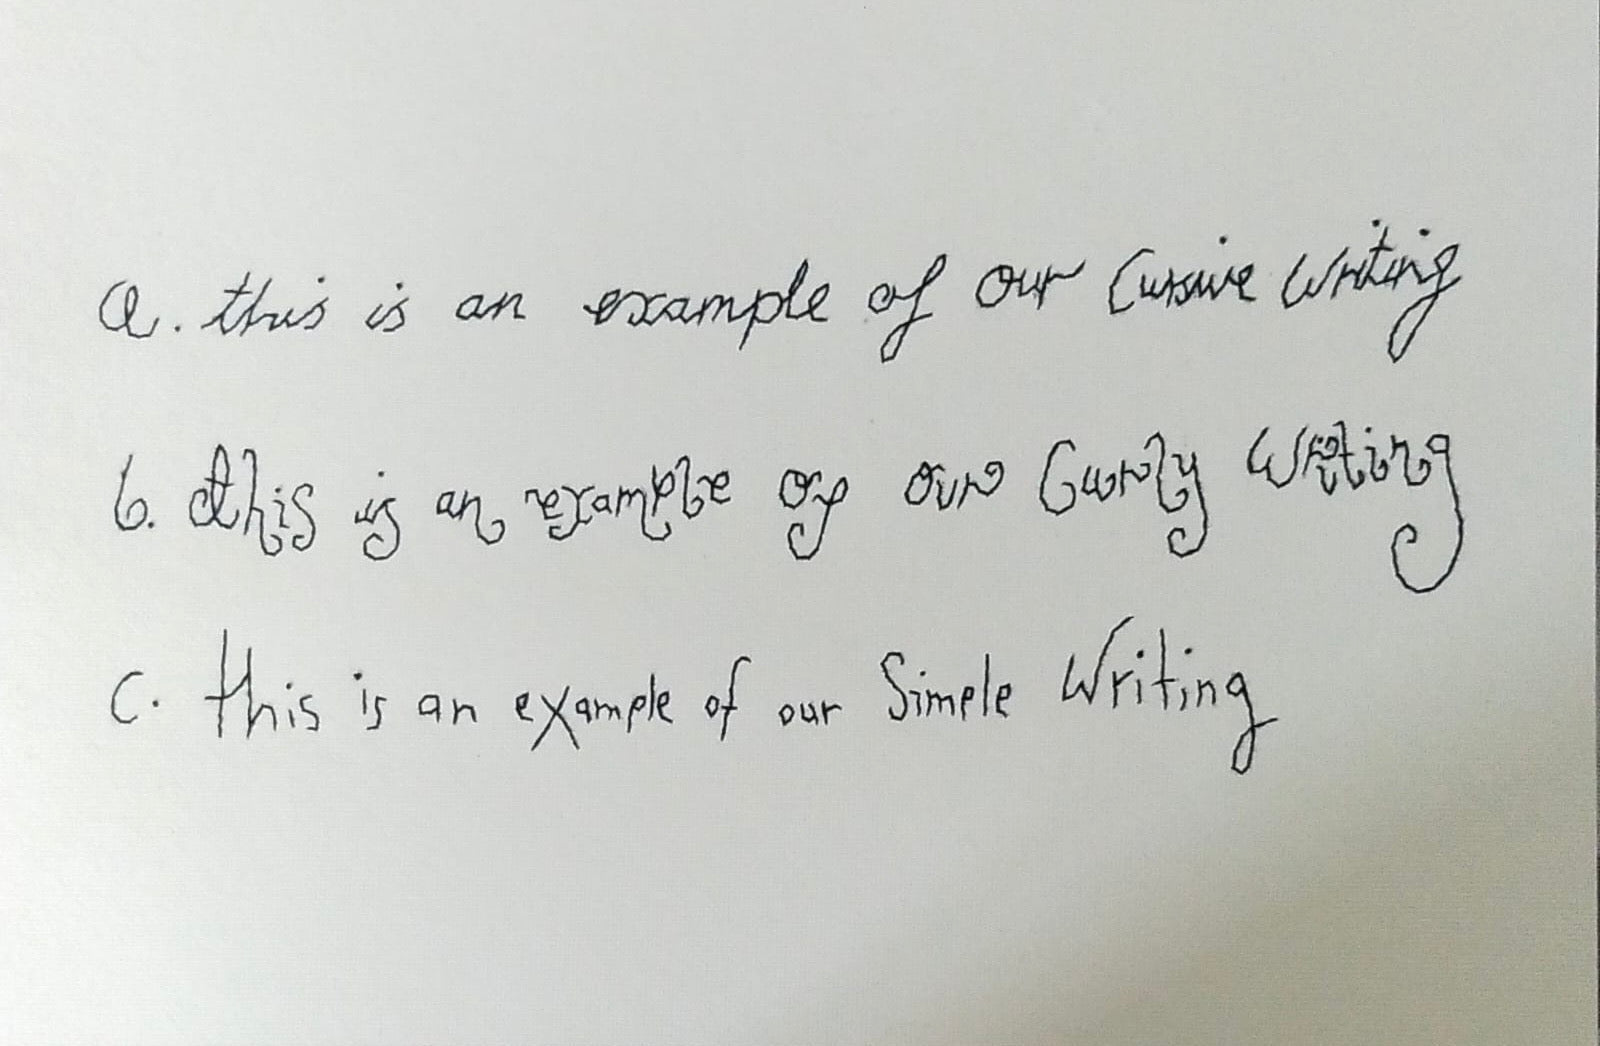 a. this is an example of our Cursive Writing
b. this is an example of our Curly Writing
c. this is an example of our Simple Writing